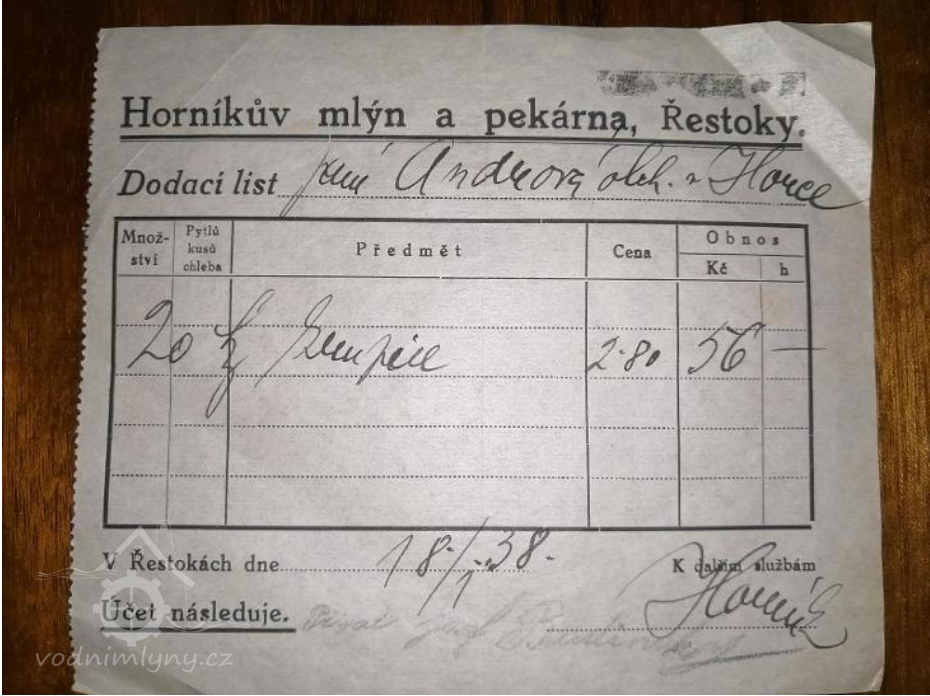 Horníkův mlýn a pekárna, Řestoky.
Dodací list paní Andrlová obch. v Horce
Množ-
ství
Pytlů
kusů
chleba
Předmět
Cena
Obnos
Kč h
20 kg krupice 2·80 56 —
V Řestokách dne 18./1. 38.
K dalším službám
Účet následuje.
Horník
vodnimlyny.cz